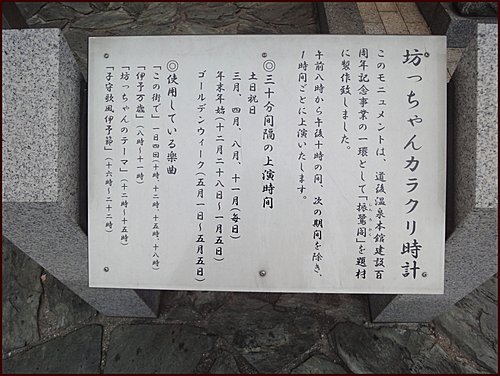 坊っちゃんカラクリ時計
このモニュメントは、道後温泉本館建設百
周年記念事業の一環として「振鷺閣」を題材
に製作致しました。
午前八時から午後十時の間、次の期間を除き、
1時間ごとに上演いたします。
◎三十分間隔の上演時間
土日祝日
三月、四月、八月、十一月(毎日)
年末年始(十二月二十八日～一月五日)
ゴールデンウィーク(五月一日～五月五日)
◎使用している楽曲
「この街で」一日四回(十時、十二時、十五時、十八時)
「伊予万歳」(八時～十一時)
「坊っちゃんのテーマ」(十二時～十五時)
「子守歌風伊予節」(十六時～二十二時)